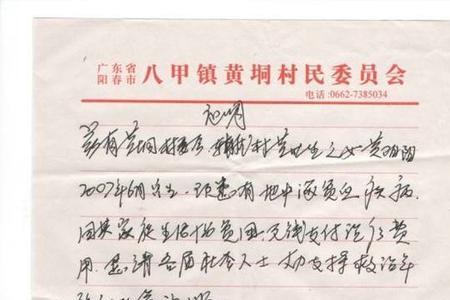 广东省
阳春市 八甲镇黄垌村民委员会
电话:0662-7385034
证明
兹有黄垌村委会 村黄 生之女黄
2007年6月出生，现患有地中海贫血疾病，
因其家庭生活怕贫困，无钱支付治疗费
用，恳请各届社会人士 力支持救治